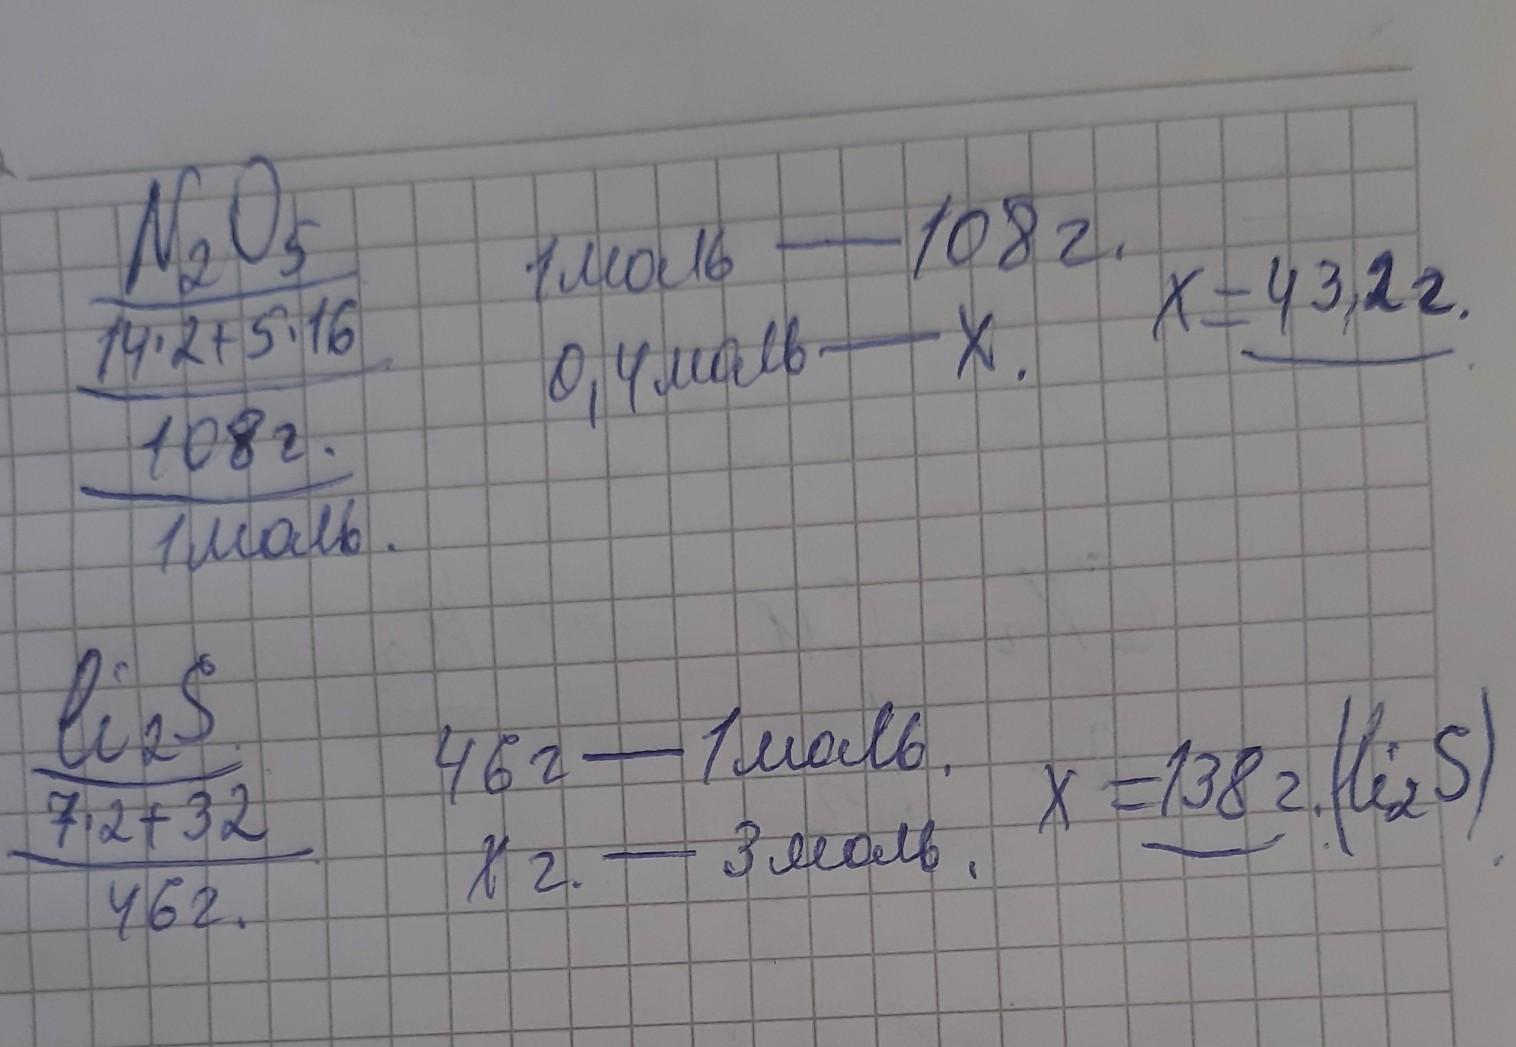 N₂O₅
14·2+5·16
108г.
1моль.
1моль — 108г.
0,4моль — x.
x=43,2г.
li₂S
7·2+32
46г.
46г — 1моль.
x г. — 3моль.
x=138г.(li₂S)